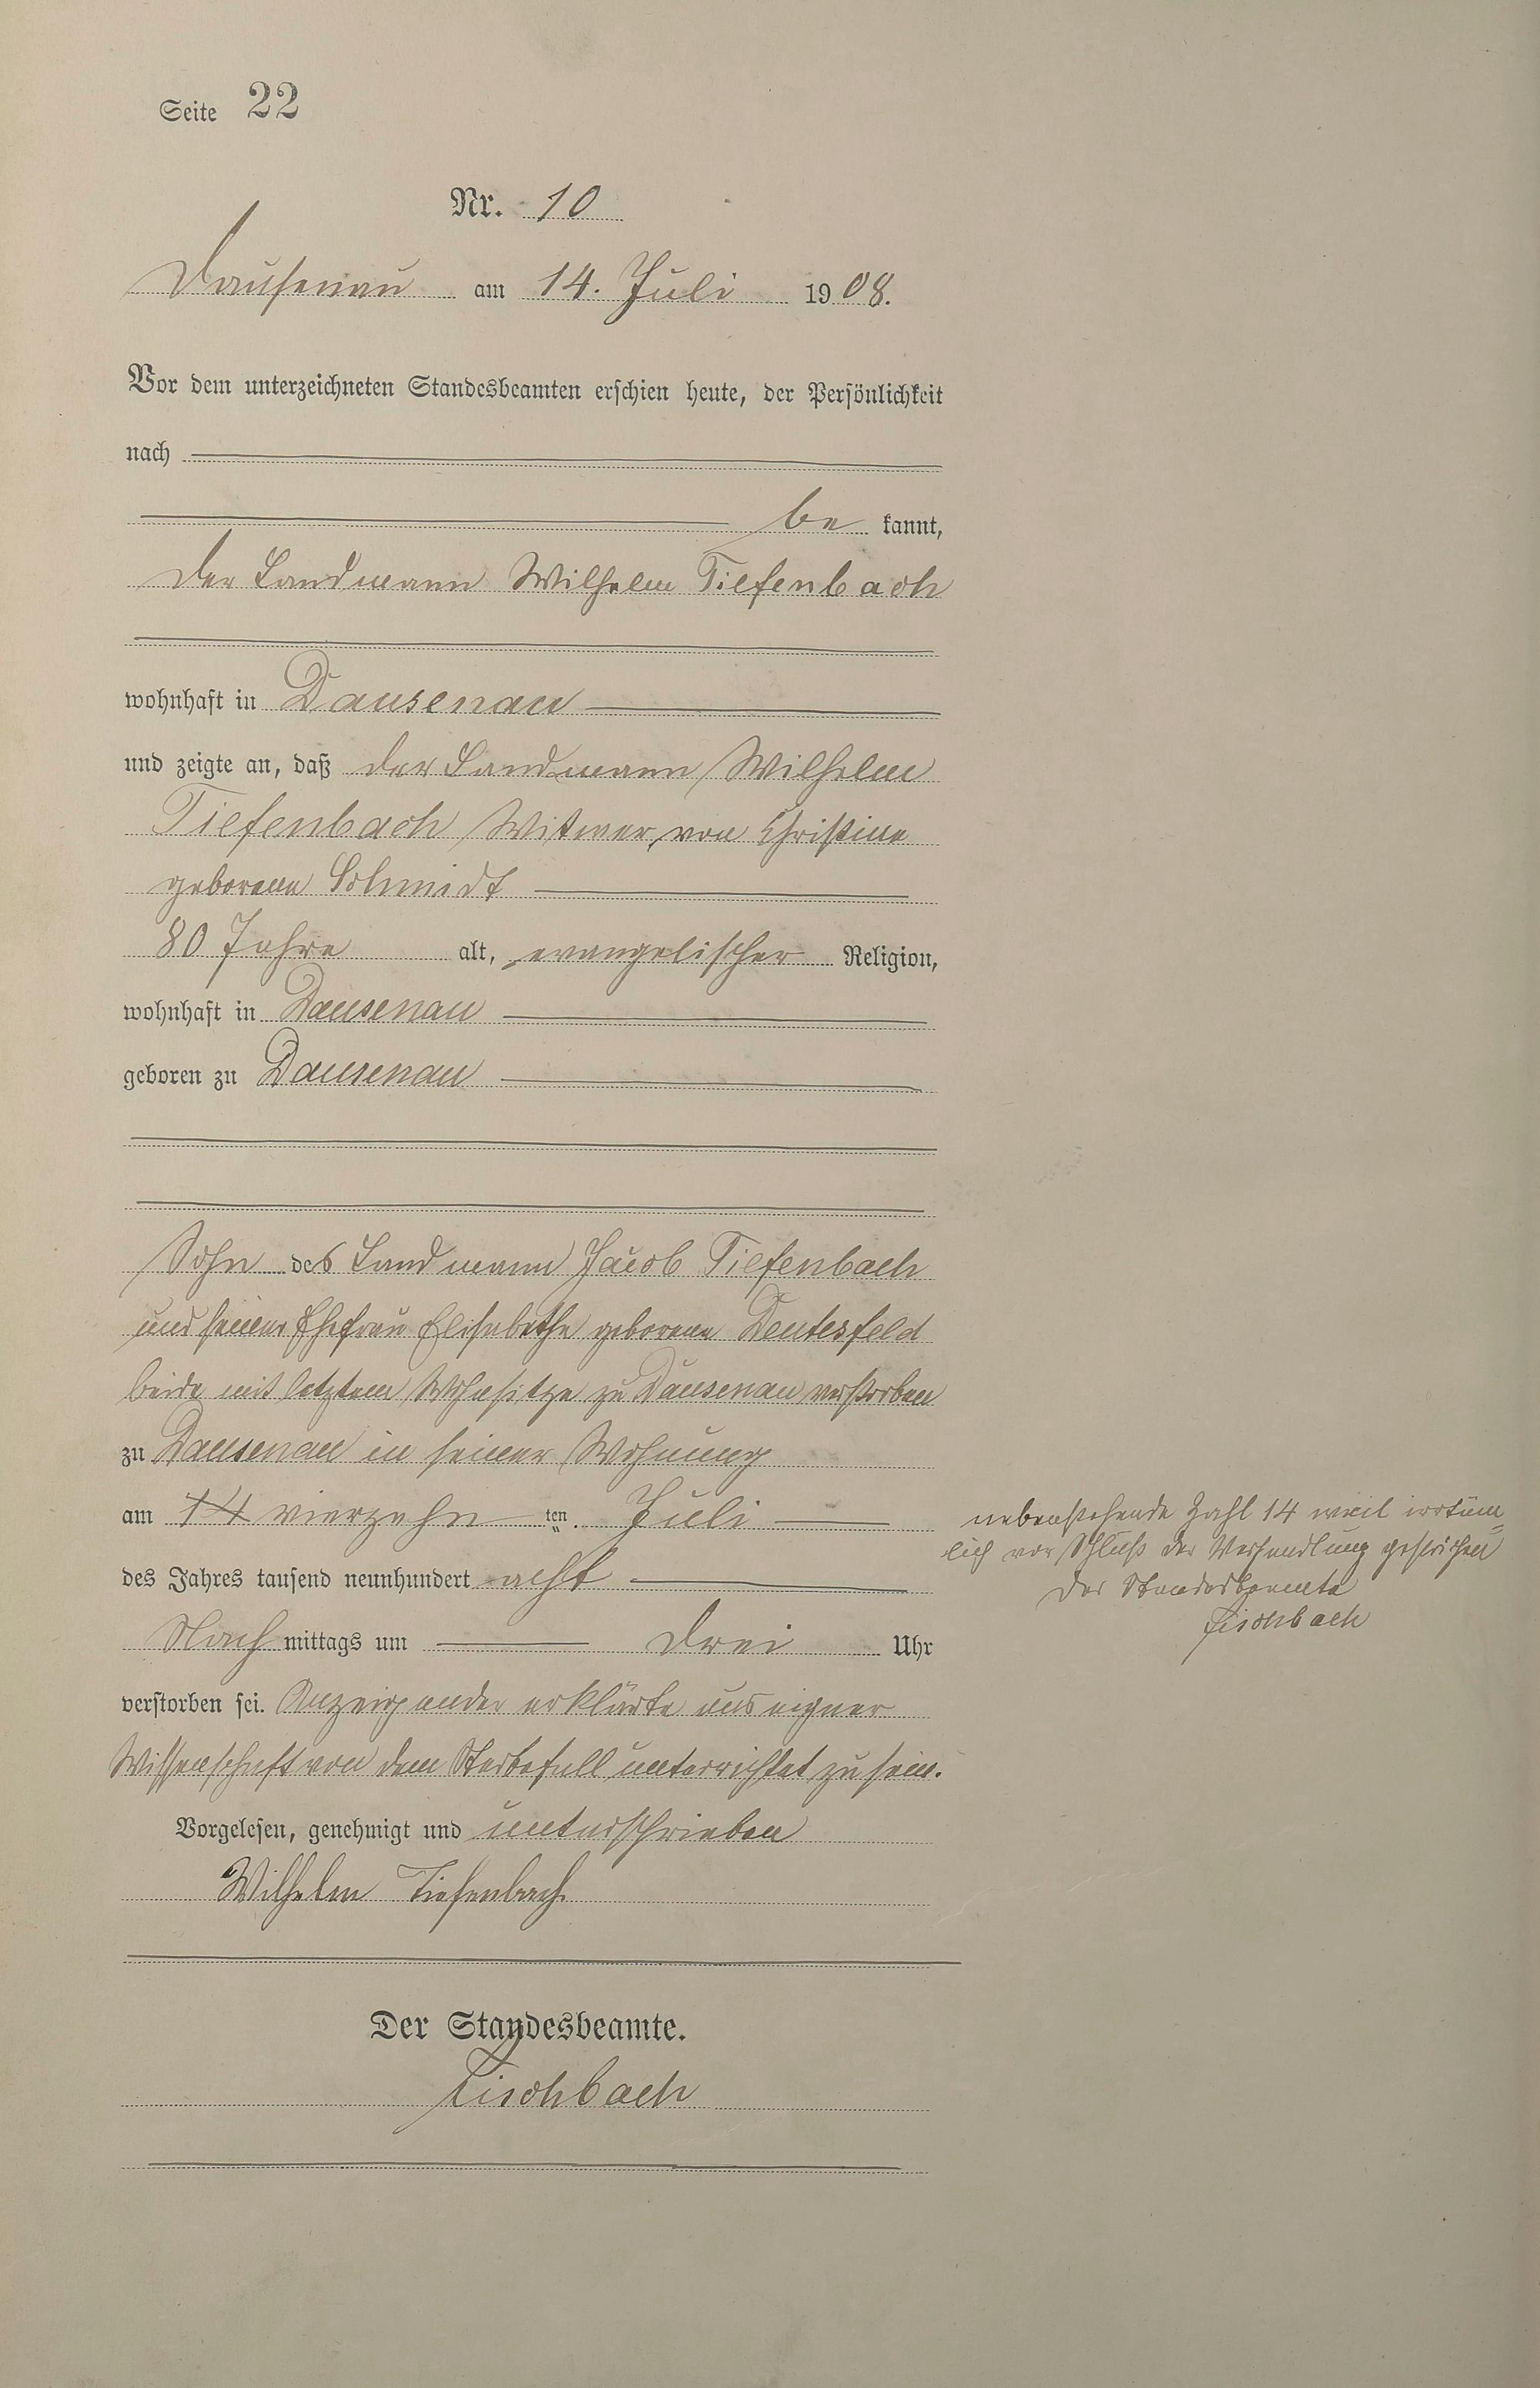 Seite 22
Nr. 10
Dausenau am 14. Juli 1908.
Vor dem unterzeichneten Standesbeamten erschien heute, der Persönlichkeit
nach
be kannt,
der Landmann Wilhelm Tiefenbach
wohnhaft in Dausenau
und zeigte an, daß der Landmann Wilhelm
Tiefenbach Witwer von Christine
geborene Schmidt
80 Jahre alt, evangelischer Religion,
wohnhaft in Dausenau
geboren zu Dausenau
Sohn des Landmann Jacob Tiefenbach
und seiner Ehefrau Elisabethe geborene Deutesfeld
beide mit letztem Wohnsitze zu Dausenau verstorben
zu Dausenau in seiner Wohnung
am 14 vierzehn ten. Juli
des Jahres tausend neunhundert acht
Nach mittags um drei Uhr
verstorben sei. Anzeigender erklärte aus eigner
Wissenschaft von dem Sterbefall unterrichtet zu sein.
Vorgelesen, genehmigt und unterschrieben
Wilhelm Tiefenbach
Der Standesbeamte.
Fischbach
nebenstehende Zahl 14 weil irrtüm=
lich vor Schluß der Verhandlung gestrichen
Der Standesbeamte
Fischbach